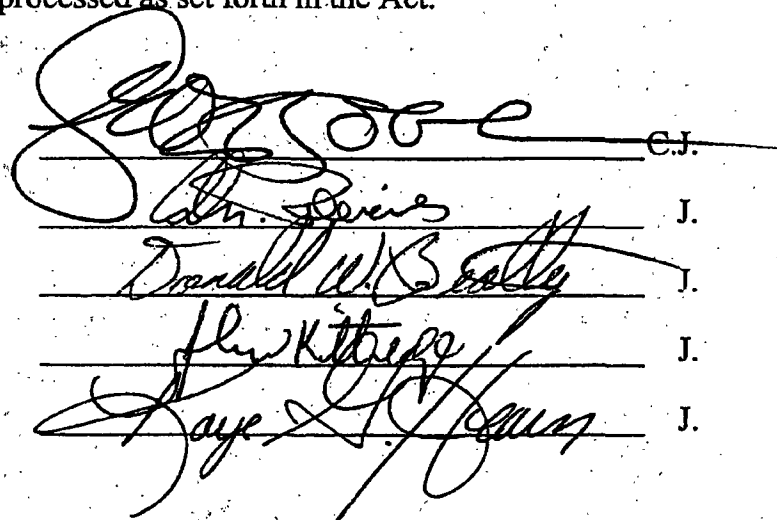 processed as set forth in the Act.
C.J.
J.
Donald W. Beatty J.
John Kittredge J.
Kaye G. Hearn J.